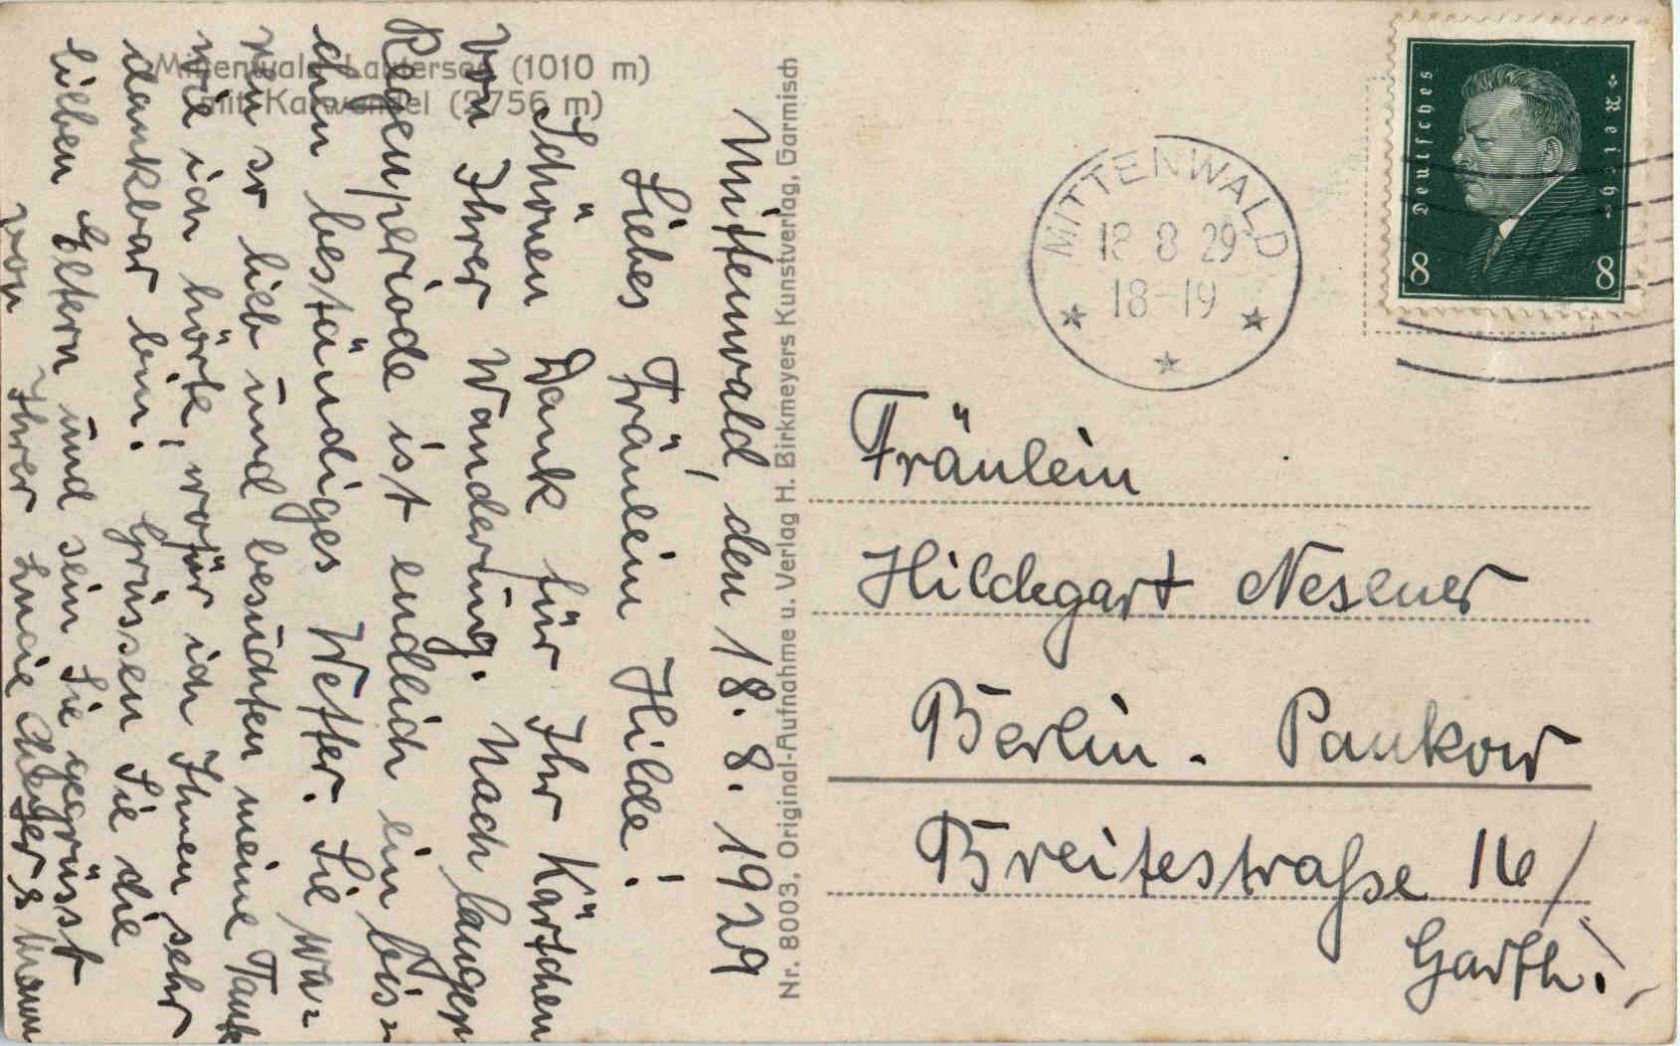 Mittenwald-Lautersee (1010 m)
mit Karwendel (2756 m)
Mittenwald, den 18. 8. 1929
Liebes Fräulein Hilde!
Schönen Dank für Ihr Kärtchen
von Ihrer Wanderung. Nach langer
Regenperiode ist endlich ein bis-
chen beständiges Wetter. Sie wa-
ren so lieb und besuchten meine Tante
wie ich hörte, wofür ich Ihnen sehr
dankbar bin. Grüssen Sie die
lieben Eltern und sein Sie gegrüsst
von Ihrer Lucie
Nr. 8003, Original-Aufnahme u. Verlag H. Birkmeyers Kunstverlag, Garmisch
MITTENWALD
18 8 29
18-19
Deutsches Reich
8 8
Fräulein
Hildegart Nesener
Berlin - Pankow
Breitestraße 16/
Garth.